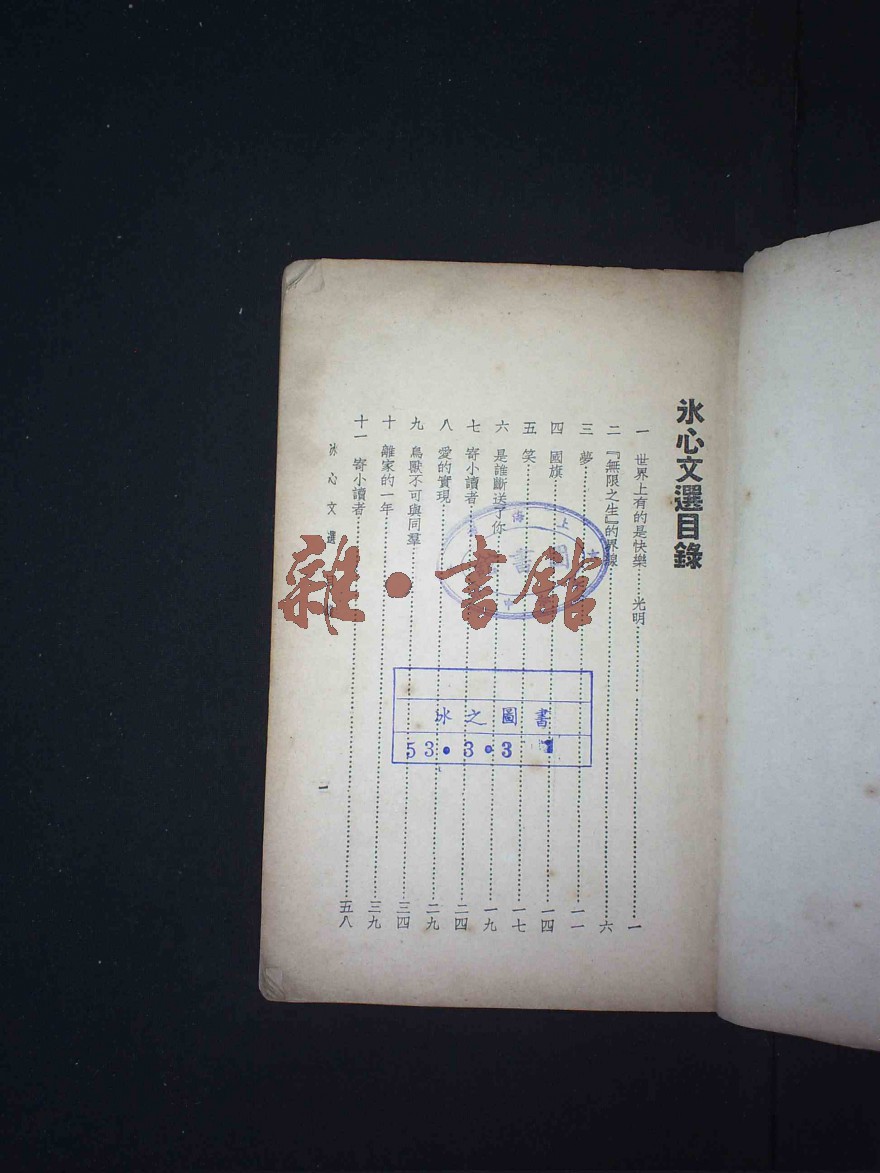 冰心文選目錄
一 世界上有的是快樂……光明……一
二 『無限之生』的界線……六
三 夢……一一
四 國旗……一四
五 笑……一七
六 是誰斷送了你……一九
七 寄小讀者……二四
八 愛的實現……二九
九 鳥獸不可與同羣……三四
十 離家的一年……三九
十一 寄小讀者……五八
冰心文選
一
上海
圖書
雜·書館
冰之圖書
53·3·31